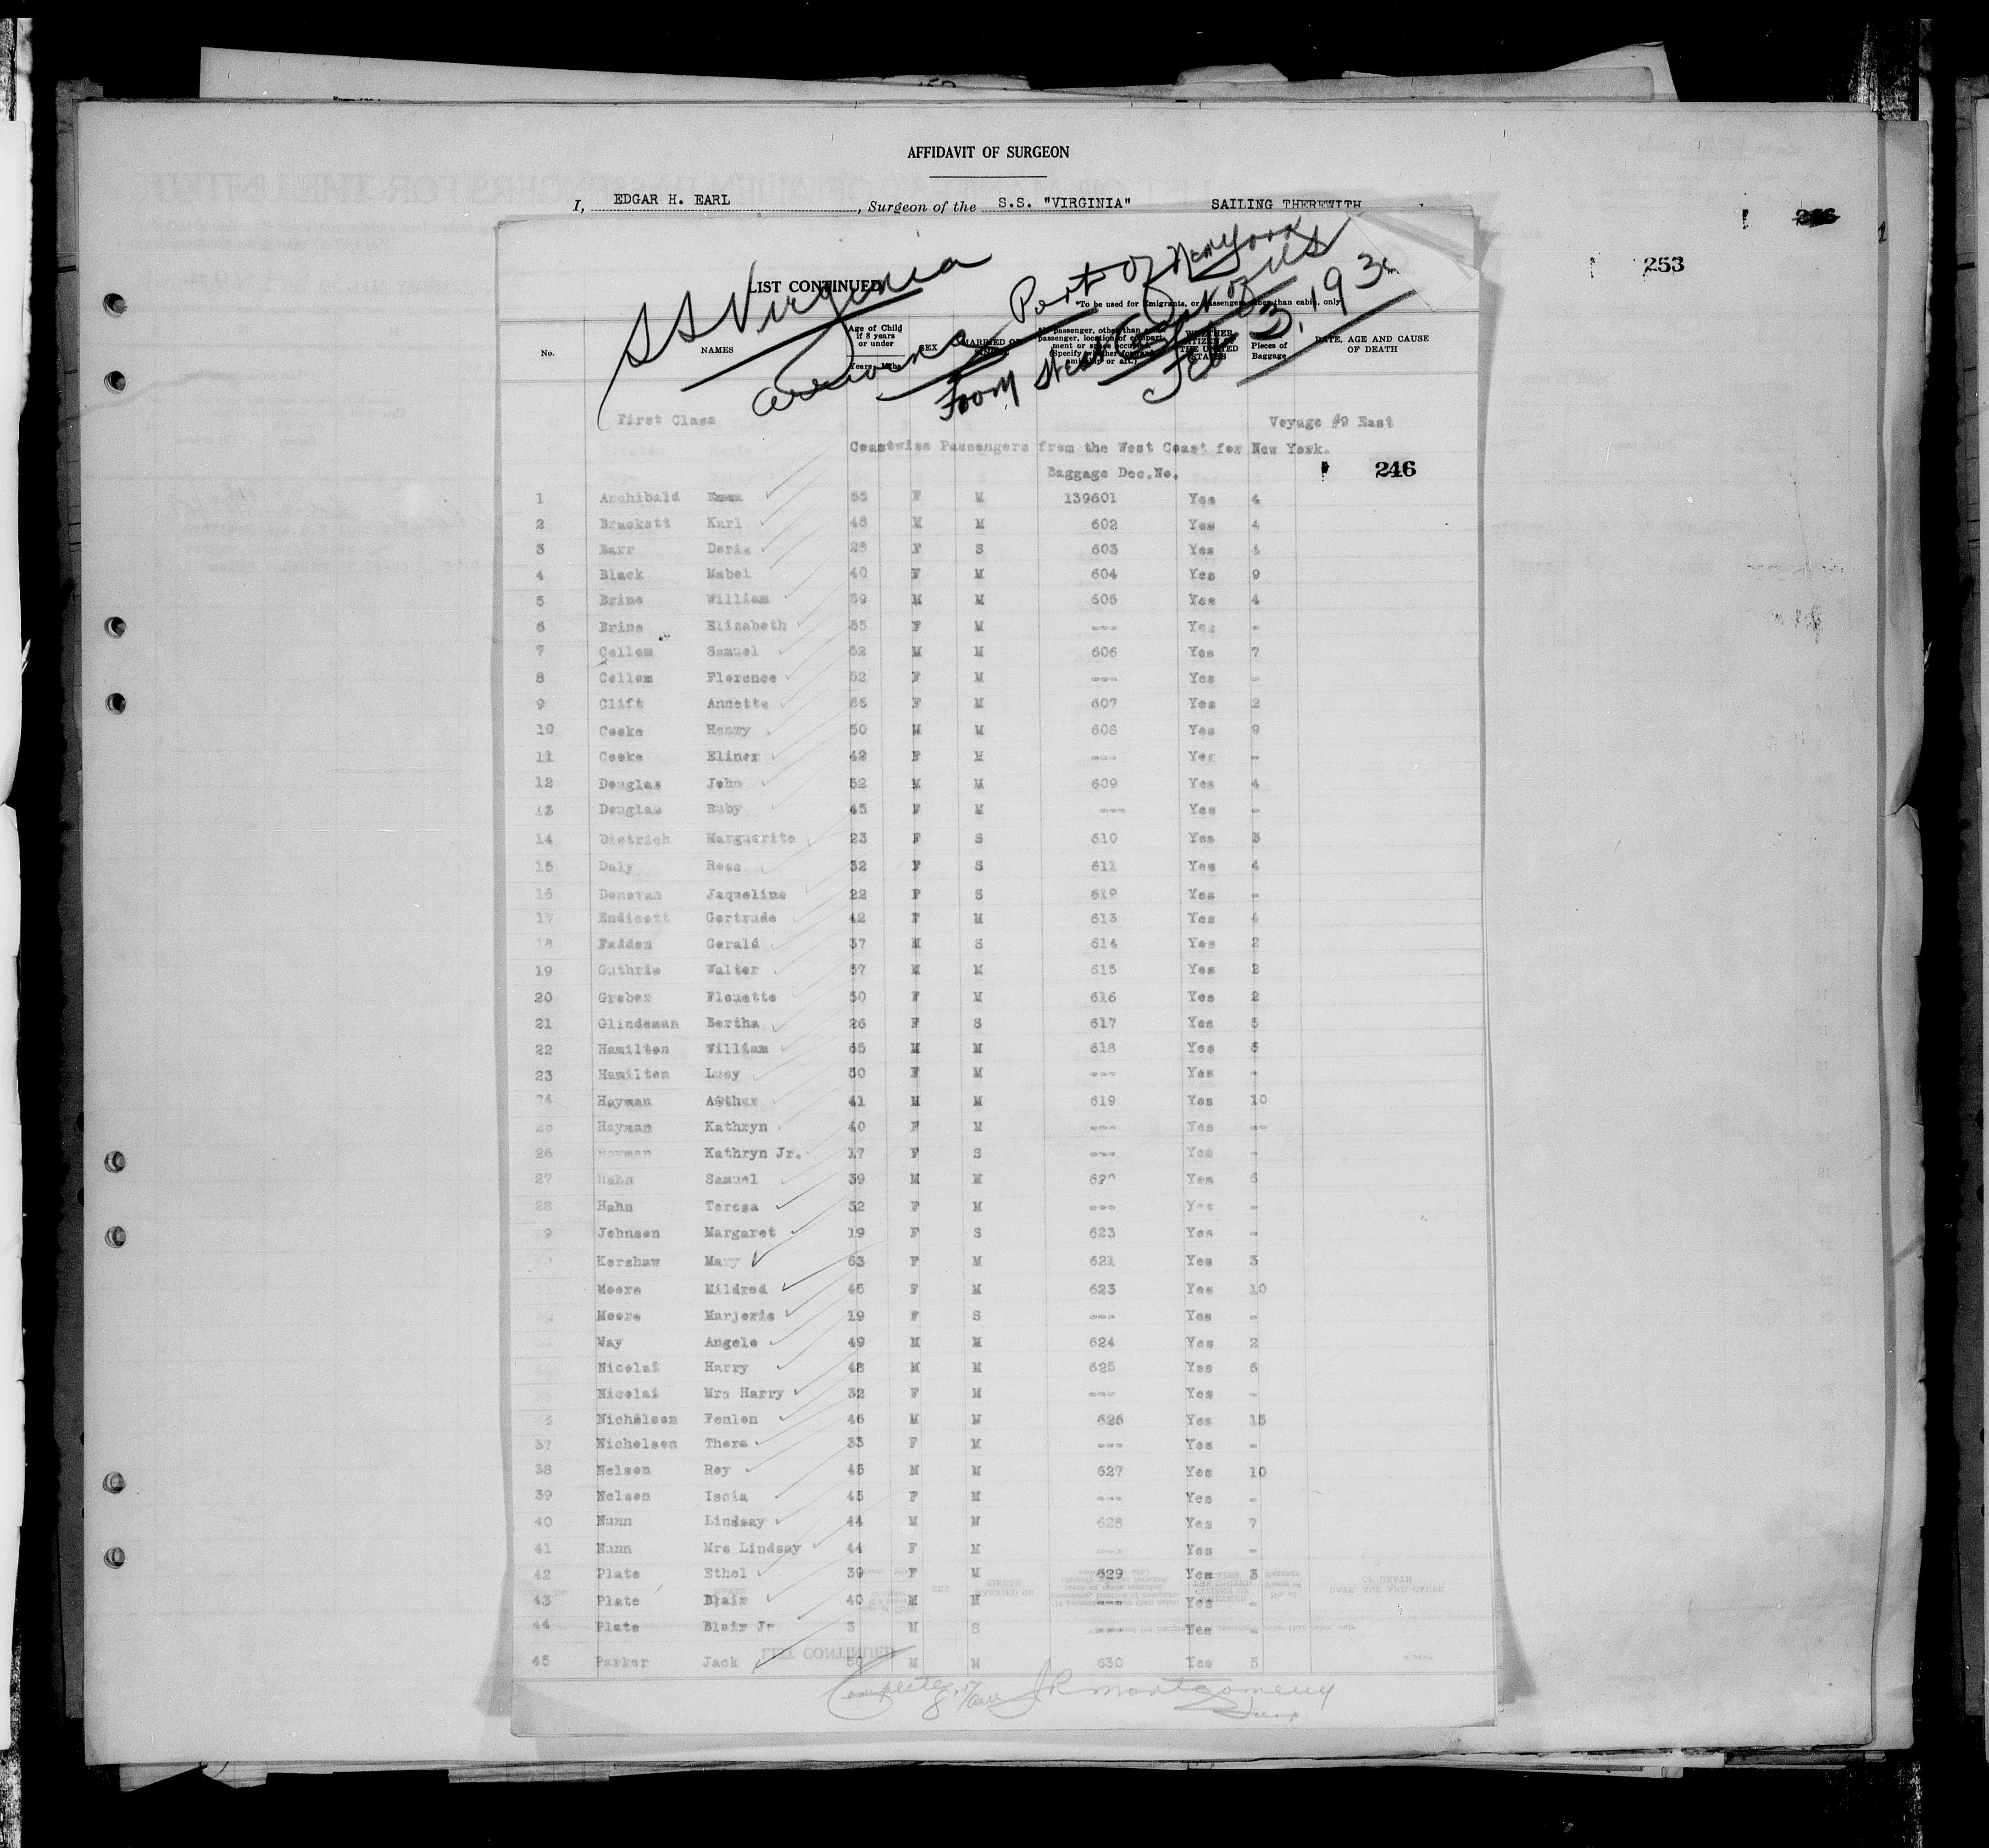 AFFIDAVIT OF SURGEON
I, EDGAR H. EARL, Surgeon of the S.S. "VIRGINIA" SAILING THEREWITH
253
SS Virginia
arriving Port of New York
From West Coast of US
Feb 3, 193
LIST CONTINUED
*To be used for Emigrants, or Passengers other than cabin, only
No.
NAMES
Age of Child if 8 years or under
Years Mths
SEX
MARRIED OR SINGLE
WHETHER CITIZEN THE UNITED STATES
Pieces of Baggage
DATE, AGE AND CAUSE OF DEATH
First Class Voyage #9 East
Coastwise Passengers from the West Coast for New York.
Baggage Dec.No. 246
1 Archibald Emma 55 F M 139601 Yes 4
2 Brackett Karl 45 M M 602 Yes 4
3 Barr Doris 28 F S 603 Yes 4
4 Black Mabel 40 F M 604 Yes 9
5 Brine William 59 M M 605 Yes 4
6 Brine Elizabeth 55 F M --- Yes -
7 Collom Samuel 52 M M 606 Yes 7
8 Collom Florence 52 F M --- Yes -
9 Clift Annette 65 F M 607 Yes 2
10 Cooke Henry 50 M M 608 Yes 9
11 Cooke Elinor 42 F M --- Yes -
12 Douglas John 52 M M 609 Yes 4
13 Douglas Ruby 45 F M --- Yes -
14 Dietrich Marguerite 23 F S 610 Yes 3
15 Daly Rosa 32 F S 611 Yes 4
16 Donovan Jaqueline 22 F S 619 Yes -
17 Endicott Gertrude 42 F M 613 Yes 4
18 Fadden Gerald 37 M S 614 Yes 2
19 Guthrie Walter 57 M M 615 Yes 2
20 Grober Flouette 50 F M 616 Yes 2
21 Glindeman Bertha 26 F S 617 Yes 5
22 Hamilton William 65 M M 618 Yes 6
23 Hamilton Lucy 50 F M --- Yes -
24 Hayman Arthur 41 M M 619 Yes 10
25 Hayman Kathryn 40 F M --- Yes --
26 Hayman Kathryn Jr. 17 F S --- Yes -
27 Hahn Samuel 39 M M 620 Yes 6
28 Hahn Teresa 32 F M --- Yes -
29 Johnson Margaret 19 F S 623 Yes -
Kershaw Mary 63 F M 621 Yes 3
Moore Mildred 45 F M 623 Yes 10
Moore Marjorie 19 F S --- Yes -
May Angelo 49 M M 624 Yes 2
Nicolai Harry 48 M M 625 Yes 6
Nicolai Mrs Harry 32 F M --- Yes -
6 Nicholson Fenlon 46 M M 626 Yes 15
37 Nicholson Thora 33 F M --- Yes -
38 Nelson Roy 45 M M 627 Yes 10
39 Nelson Iscia 45 F M --- Yes -
40 Nunn Lindsay 44 M M 628 Yes 7
41 Nunn Mrs Lindsay 44 F M --- Yes -
42 Plate Ethel 39 F M 629 Yes 3
43 Plate Blair 40 M M --- Yes -
44 Plate Blair Jr 3 M S --- Yes -
45 Parker Jack 50 M M 630 Yes 5
Complete JR Montgomery